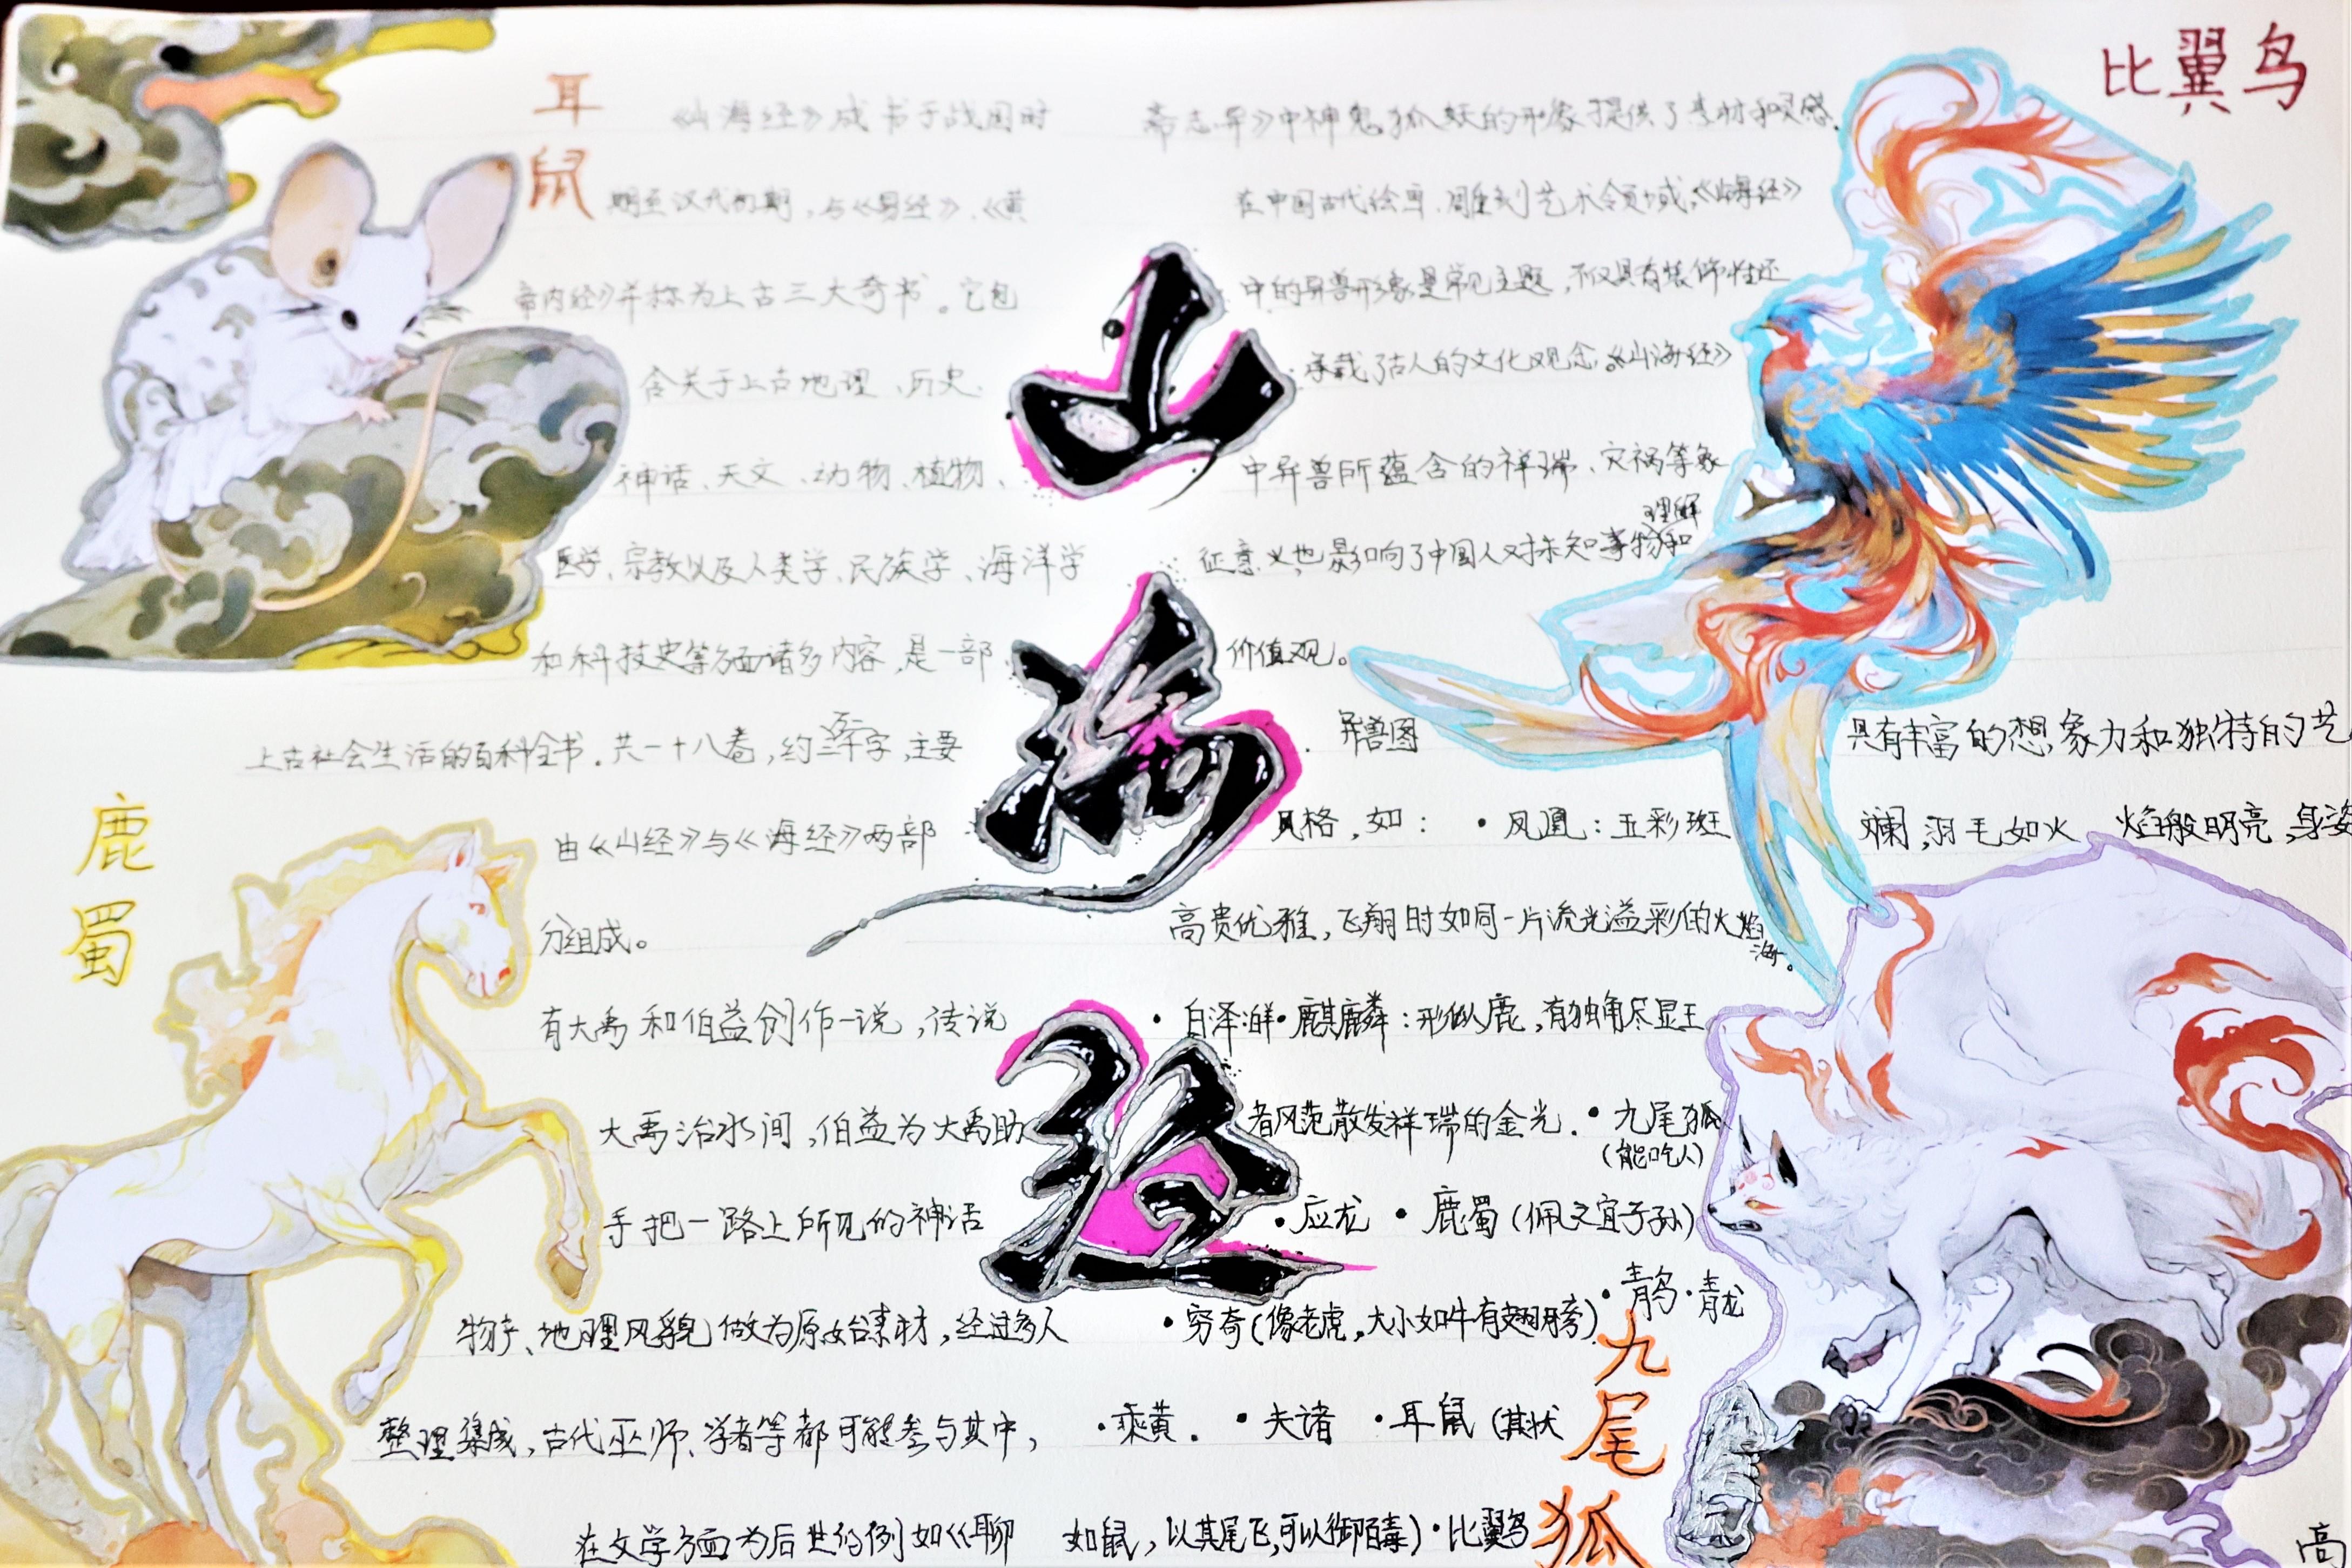 耳鼠
《山海经》成书于战国时
期至汉代初期，与《易经》、《黄
帝内经》并称为上古三大奇书。它包
含关于上古地理、历史、
神话、天文、动物、植物、
医学、宗教以及人类学、民族学、海洋学
和科技史等方面诸多内容，是一部
上古社会生活的百科全书。共一十八卷，约字，主要
由《山经》与《海经》两部
分组成。
有大禹和伯益创作一说，传说
大禹治水间，伯益为大禹助
手把一路上所见的神话
物产、地理风貌做为原始素材，经过多人
整理集成，古代巫师、学者等都可能参与其中，
在文学方面为后世的例如《聊
鹿蜀
山海经
斋志异》中神鬼狐妖的形象提供了素材和灵感。
在中国古代绘画、雕刻艺术领域，《山海经》
中的异兽形象是常见主题，不仅具有装饰性还
承载了古人的文化观念。《山海经》
中异兽所蕴含的祥瑞、灾祸等象
征意义也影响了中国人对未知事物和理解
价值观。
异兽图 具有丰富的想象力和独特的艺
风格，如： •凤凰：五彩斑斓，羽毛如火焰般明亮，身姿
高贵优雅，飞翔时如同一片流光溢彩的火焰海。
•白泽•麒麟：形似鹿，有独角尽显王
者风范散发祥瑞的金光。•九尾狐
（能吃人）
•应龙 •鹿蜀（佩之宜子孙）
•青鸟•青龙
•穷奇（像老虎，大小如牛有翅膀）
•乘黄. •夫诸 •耳鼠（其状
如鼠，以其尾飞，可以御百毒）•比翼鸟
比翼鸟
九尾狐
高